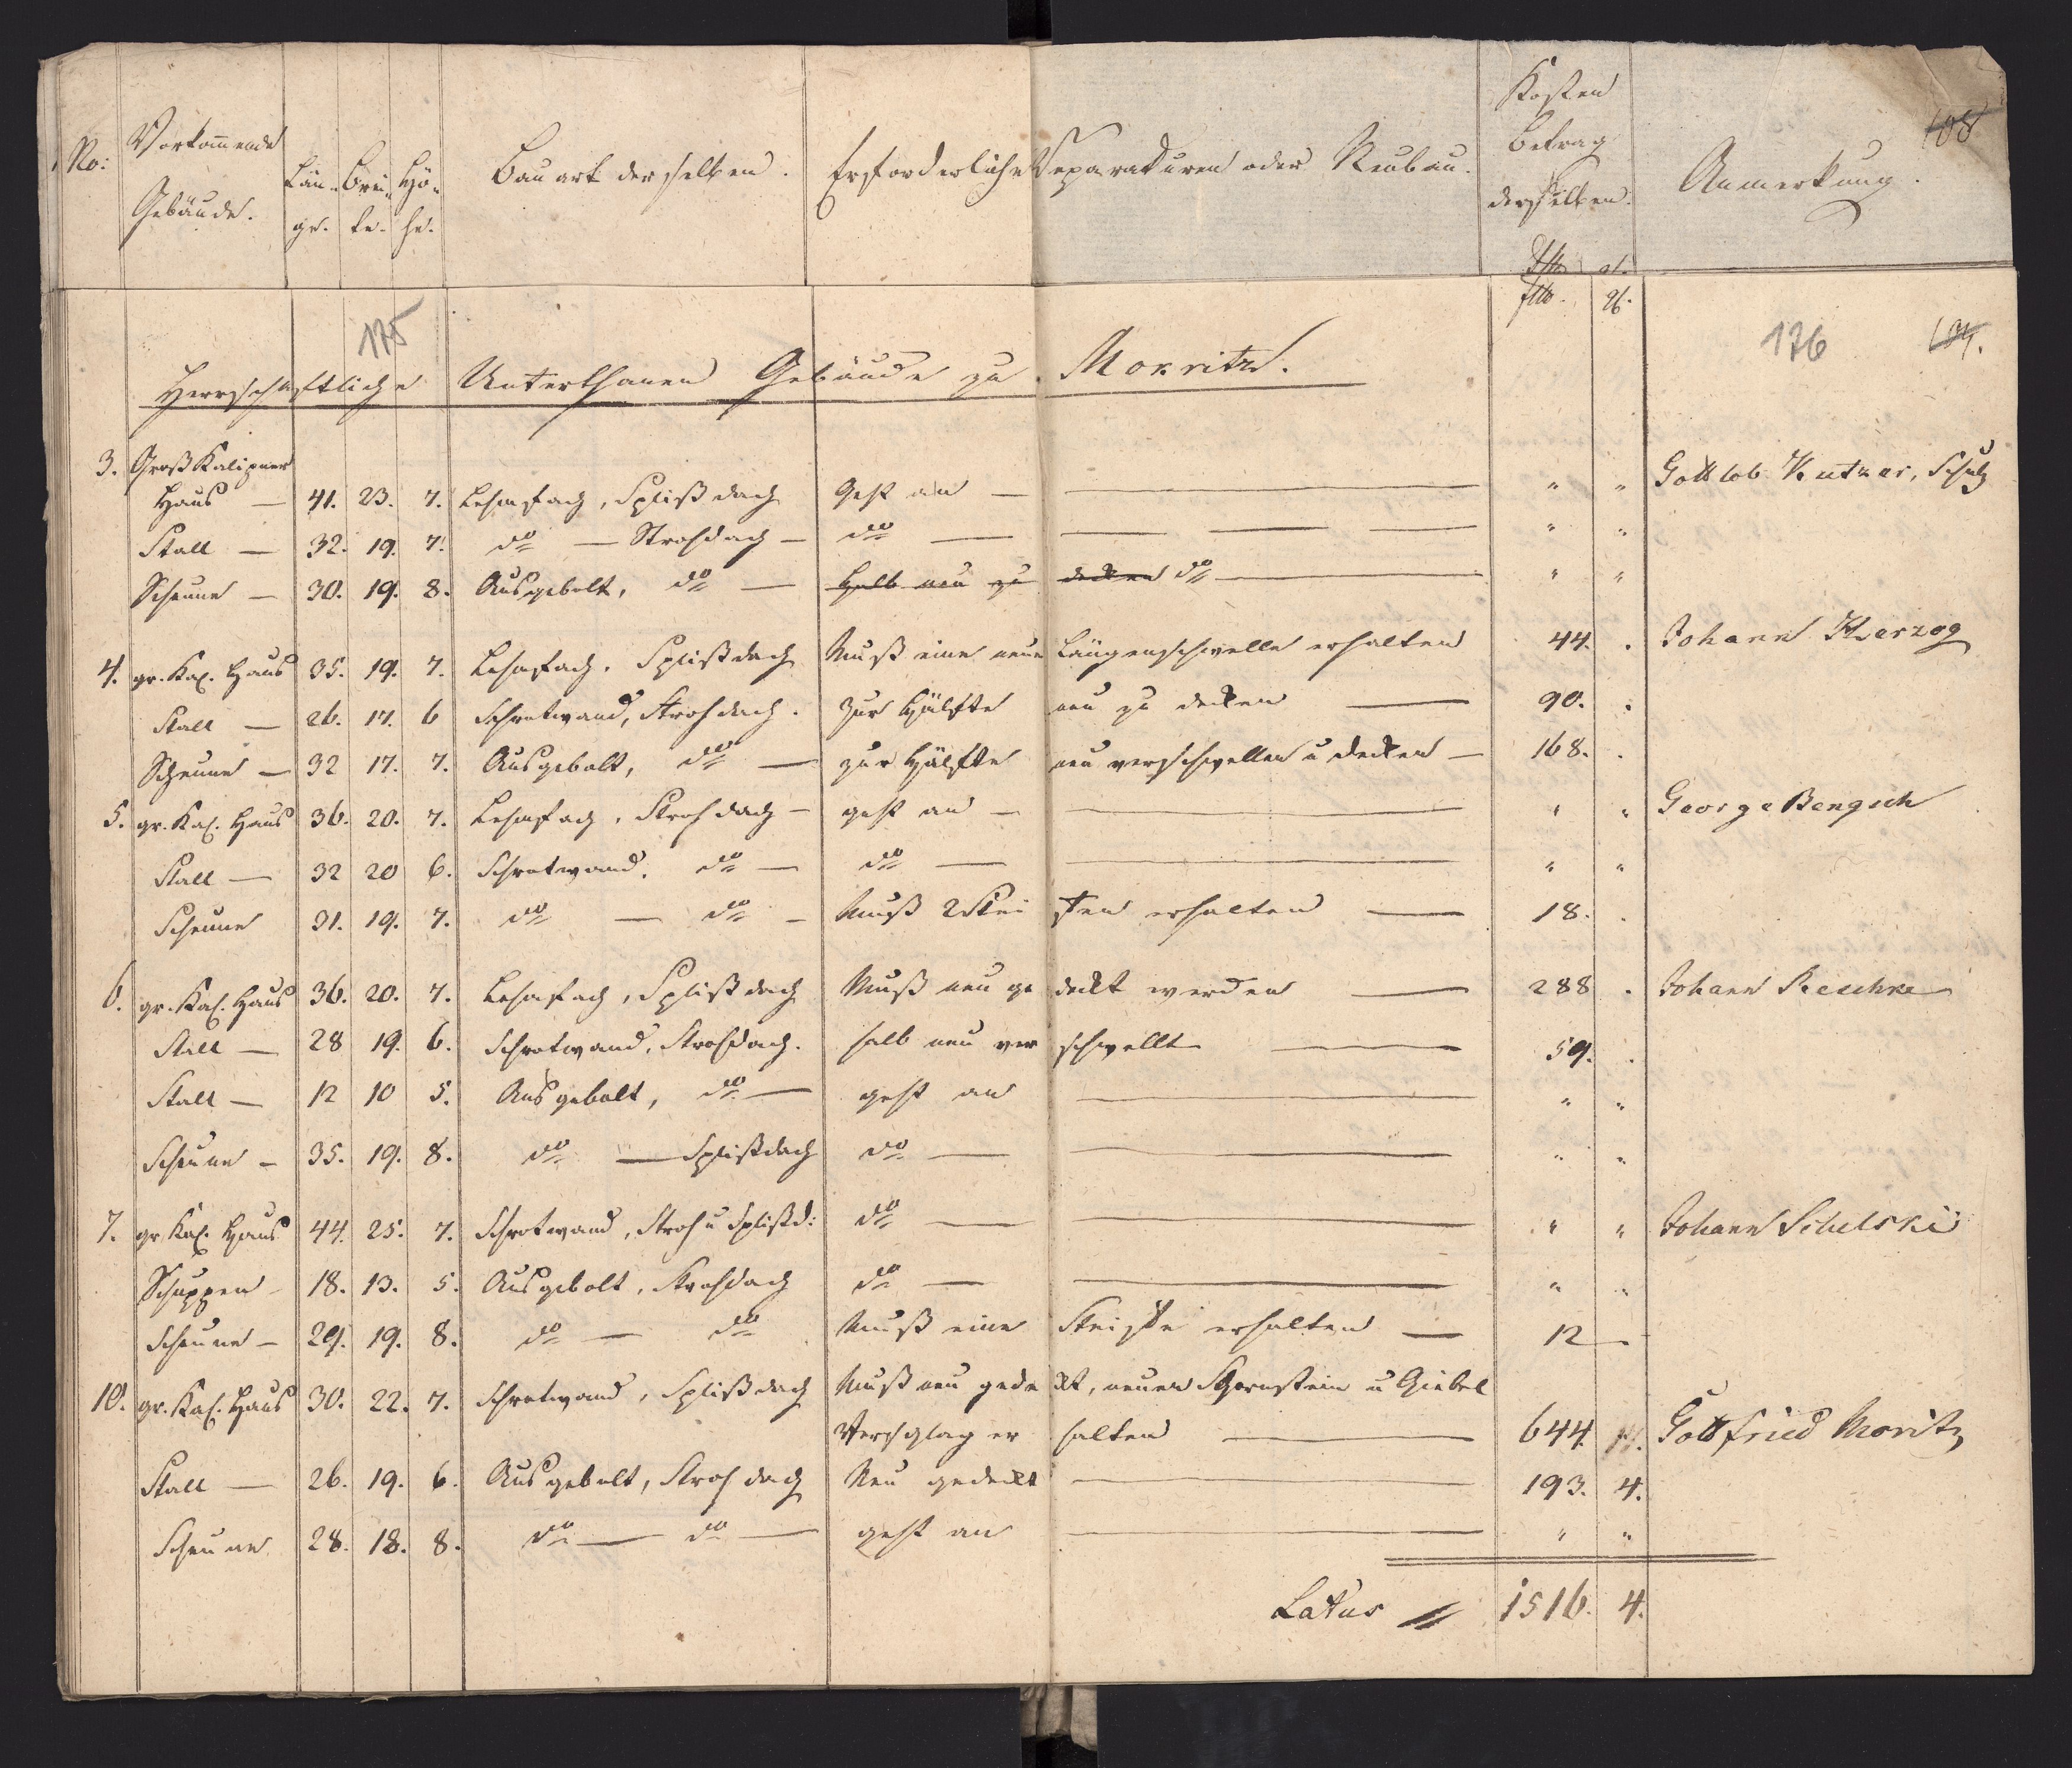 No: Vorkom̅ende Gebäude. Län- ge. Brei- te. Hö- he. Bauart derselben. Erforderliche Reparaturen oder Neubau. Kosten Betrag derselben. Anmerkung.
108
175
176
Herrschaftliche Unterthanen Gebäude zu Mokritz.
3. Groß Kaliponer
Haus — 41. 23. 7. Lehmfach, Splißdach Geht an — " " Gottlob Kutzer, Schulz
Stall — 32. 19. 7. do — Strohdach — do — " "
Scheune — 30. 19. 8. Ausgebolt, do — Halb neu zu decken do — " "
4. gr. Kal. Haus 35. 19. 7. Lehmfach, Splißdach Muß eine neue Längenschwelle erhalten 44. . Johann Herzog
Stall — 26. 17. 6 Schrotwand, Strohdach. zur Hälfte neu zu decken — 90. .
Scheune — 32 17. 7. Ausgebolt, do — zur Hälfte neu verschwellen u decken — 168. .
5. gr. Kal. Haus 36. 20. 7. Lehmfach, Strohdach — geht an — " " George Bengsch
Stall — 32 20 6. Schrotwand, do — do — " "
Scheune 31. 19. 7. do — do — Muß 2 Stei sten erhalten — 18. .
6. gr. Kal. Haus 36. 20. 7. Lehmfach, Splißdach Muß neu ge deckt werden — 288 . Johann Reschke
Stall — 28 19. 6. Schrotwand, Strohdach. halb neu ver schwellt — 59. .
Stall — 12 10 5. Ausgebolt, do — geht an — " "
Scheune — 35. 19. 8. do — Splißdach do — " "
7. gr Kal. Haus 44. 25. 7. Schrotwand, Stroh u Splißd: do — " " Johann Schulski
Schuppen — 18. 13. 5. Ausgebolt, Strohdach do — " "
Scheune — 29. 19. 8. do — do Muß eine Steiste erhalten — 12 —
10. gr. Kal. Haus 30. 22. 7. Schrotwand, Splißdach Muß neu gede ckt, neuen Schornstein u Giebel
Verschlag er halten — 644. Gottfried Moritz
Stall — 26. 19. 6. Ausgebolt, Strohdach Neu gedeckt — 193. 4.
Scheune 28. 18. 8. do — do — geht an — " "
Latus 1516. 4.